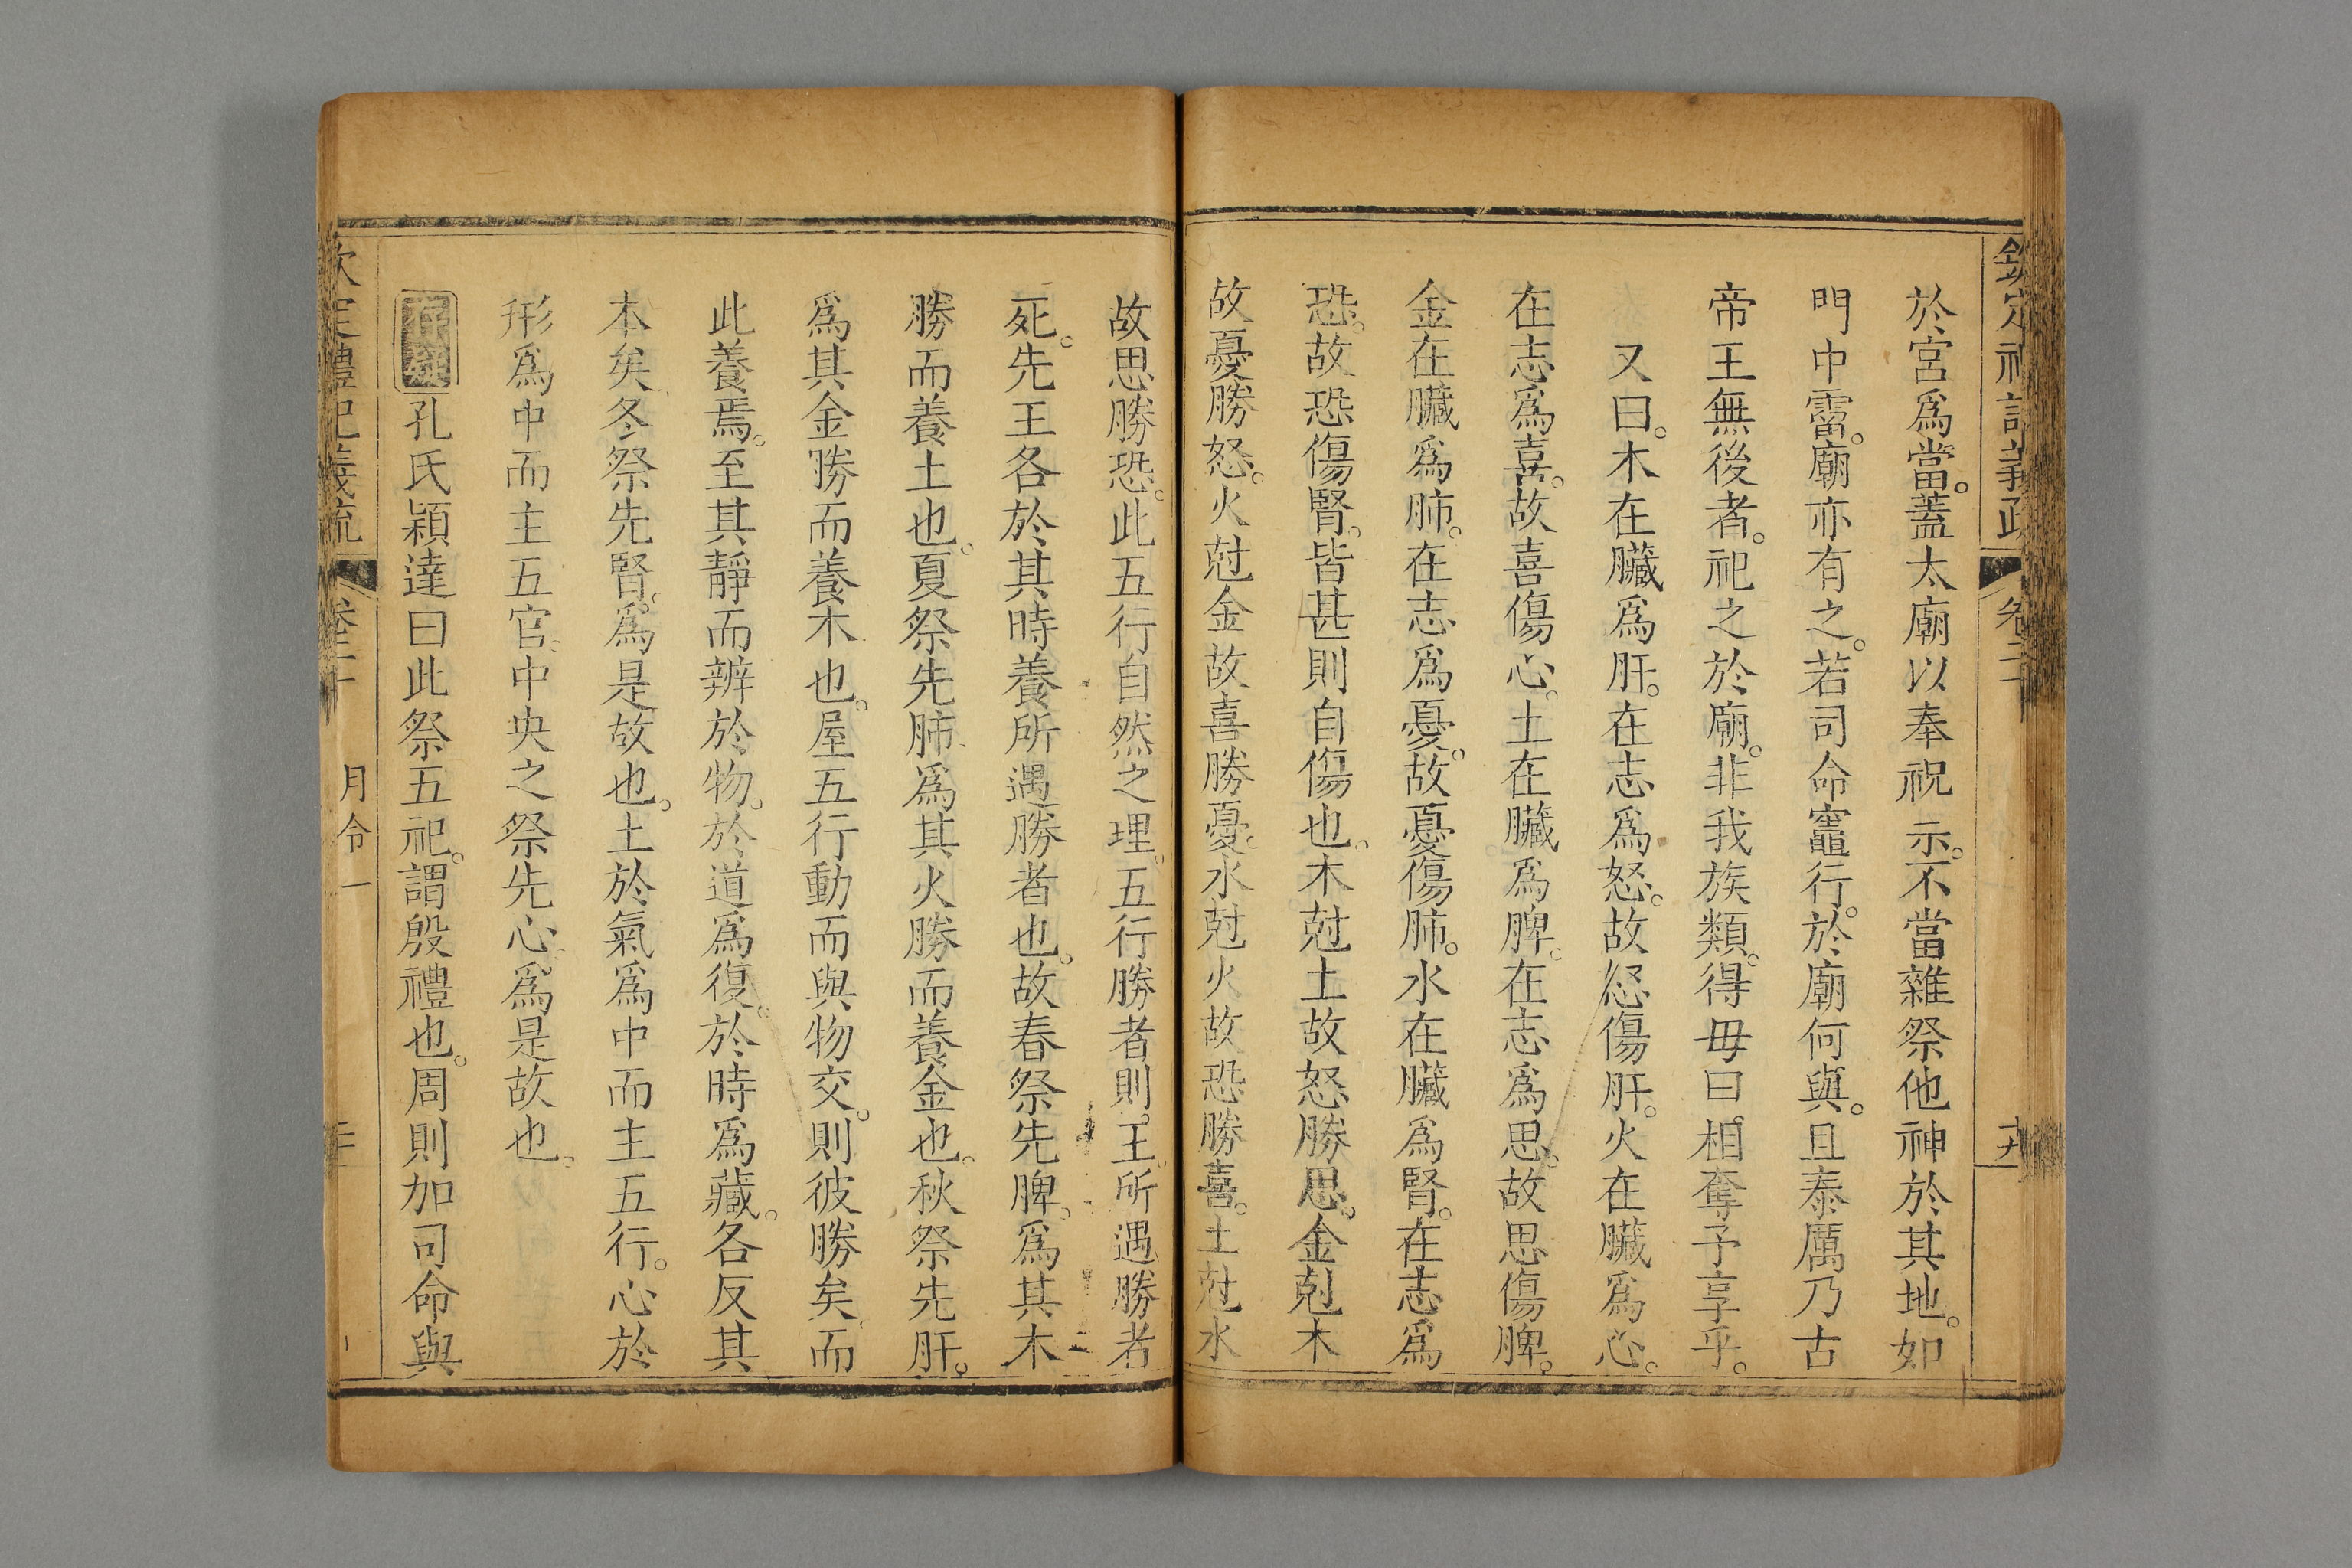 欽定禮記義疏 卷二十 十九
於宮爲當。蓋太廟以奉祝示。不當雜祭他神於其地。如
門中霤。廟亦有之。若司命竈行。於廟何與。且泰厲乃古
帝王無後者。祀之於廟。非我族類。得毋曰相奪予享乎。
又曰。木在臟爲肝。在志爲怒。故怒傷肝。火在臟爲心。
在志爲喜。故喜傷心。土在臟爲脾。在志爲思。故思傷脾。
金在臟爲肺。在志爲憂。故憂傷肺。水在臟爲腎。在志爲
恐。故恐傷腎。皆甚則自傷也。木尅土故怒勝思。金尅木
故憂勝怒。火尅金故喜勝憂。水尅火故恐勝喜。土尅水
故思勝恐。此五行自然之理。五行勝者則王。所遇勝者
死。先王各於其時養所遇勝者也。故春祭先脾。爲其木
勝而養土也。夏祭先肺爲其火勝而養金也。秋祭先肝。
爲其金勝而養木也。屋五行動而與物交。則彼勝矣而
此養焉。至其靜而辨於物。於道爲復。於時爲藏。各反其
本矣冬祭先腎。爲是故也。土於氣爲中而主五行。心於
形爲中而主五官。中央之祭先心爲是故也。
存疑 孔氏穎達曰此祭五祀。謂殷禮也。周則加司命與
欽定禮記義疏 卷二十 月令一 二十